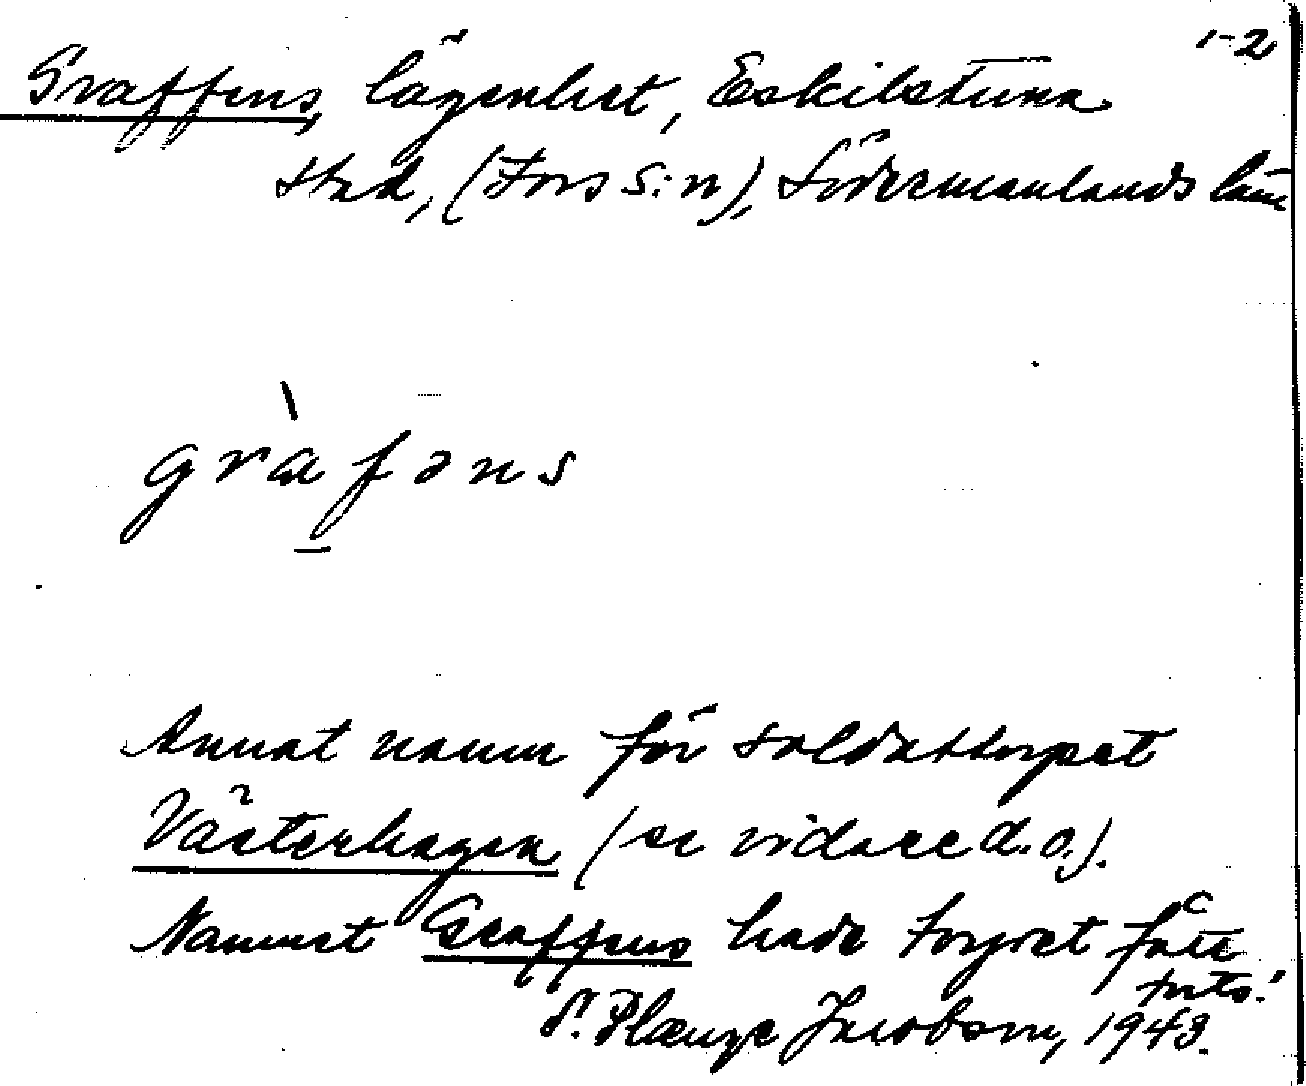 1-2
Graffens, lägenhet, Eskilstuna
stad, (Fors s:n), Södermanlands län
gràfəns
Annat namn för soldattorpet
Västerhagen (se vidare d.o.).
Namnet Graffens hade torpet fått
forts.
S. Plænge Jacobson, 1943.